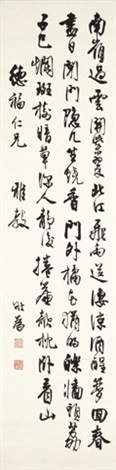 南嶺過雲開紫翠北江飛雨送淒涼酒醒夢回春
盡日閉門隱几坐燒香門外橘花猶的皪牆頭荔
子已斕斑樹暗草深人靜處捲簾欹枕臥看山
德福仁兄 雅教